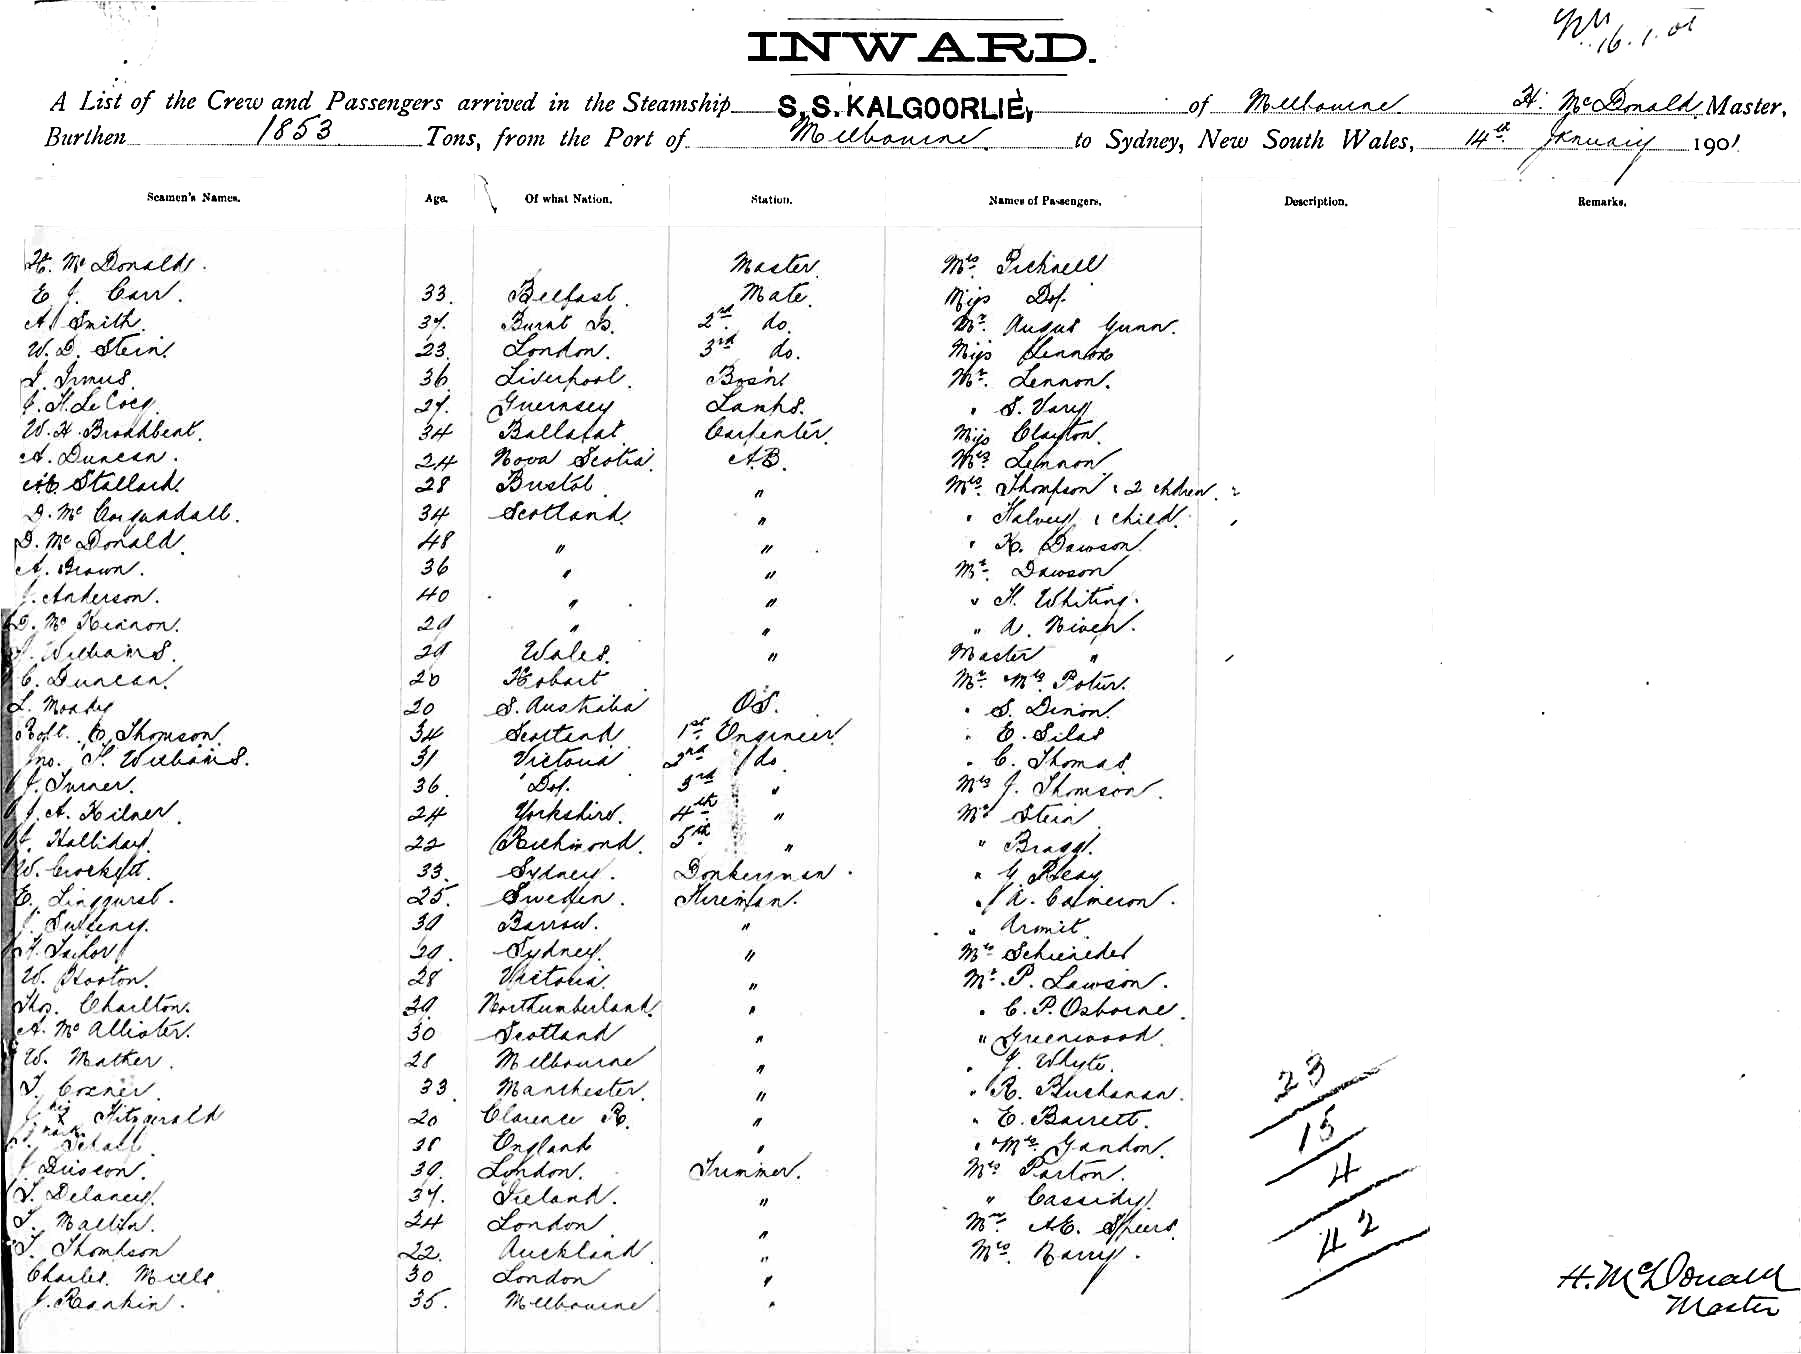 16.1.01
INWARD.
A List of the Crew and Passengers arrived in the Steamship S.S. KALGOORLIE, of Melbourne H. McDonald Master,
Burthen 1853 Tons, from the Port of Melbourne. to Sydney, New South Wales, 14th January 1901
Seamen's Names. Age. Of what Nation. Station. Names of Passengers. Description. Remarks.
H. McDonald. Master. Mrs. Picknell
E J. Carr. 33. Belfast. Mate. Miss Do.
A Smith. 37. Burnt Is. 2nd do. Mr. Angus Gunn.
W. D. Stein. 23. London. 3rd do. Miss Lennox
J. Irmus. 36. Liverpool. Bosn Mr. Lennon.
J. H. Le Cocq. 27. Guernsey Lamps. " S. Vary
W. H. Broadbent. 34 Ballarat Carpenter. Miss Clayton.
A. Duncan. 24 Nova Scotia. A.B. Mrs. Lennon
Stallard. 28 Bristol " Mrs. Thompson & 2 chdren. 2
D. Mc Corquadall. 34 Scotland. " " Halvey & child. ,
D. McDonald. 48 " " " K. Dawson.
A. Brown. 36 " " Mr. Dawson
J. Anderson. 40 " " " H. Whiting.
D. Mc Kinnon. 29 " " " A. Niven.
J. Williams. 29 Wales. " Master " ,
C. Duncan. 20 Hobart " Mr. Mrs. Potur.
L. Moady 20 S. Australia O.S. " S. Dinon.
Robt. C. Thomson. 34 Scotland 1st Engineer. " E. Silas
Jno. F. Williams. 31 Victoria 2nd do. " C. Thomas.
J. Turner. 36. Do. 3rd " Mrs J. Thomson.
J. A. Kilner. 24 Yorkshire. 4th " Mr Stein
Halliday. 22 Richmond. 5th " " Bragg.
W. Crockett. 33. Sydney. Donkeyman. " G Reay
E. Lingqurst. 25. Sweden. Fireman. " A. Cameron.
J. Sweeny. 39 Barrow. " " Aromit.
H. Taylor 29. Sydney. " Mrs Schneider
W. Hooton. 28 Victoria. " Mr. P. Lawson.
Thos. Charlton. 29. Northumberland. " " C. P. Osborne.
A. Mc Allister. 30 Scotland " " Greenwood.
W. Mather. 28 Melbourne " " J. Whyte.
T. Cosner. 33. Manchester. " " R. Buchanan. 23
J. his X mark Fitzgerald 20 Clarence R. " " E. Barrett. 15
38 England " " Mrs Gandon.
J. Driscon. 39. London. Trimmer. Mrs Parton. 4
T. Delaney. 37. Ireland. " " Cassidy.
T. Martin. 24 London. " Mr AE. Speers. 42
T. Thompson 22. Auckland. " Mrs. Narry.
Charles. Mills. 30 London " H. McDonald
J. Rankin. 35. Melbourne. " Master